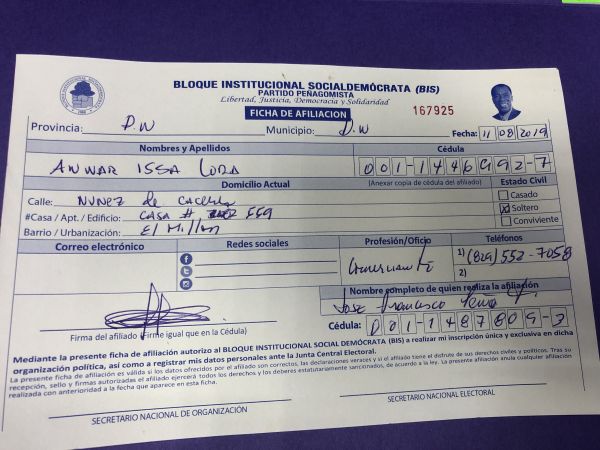 BLOQUE INSTITUCIONAL SOCIALDEMÓCRATA (BIS)
PARTIDO PEÑAGOMISTA
Libertad, Justicia, Democracia y Solidaridad
FICHA DE AFILIACION
167925
Provincia: D.N Municipio: D.N Fecha: 11 08 2019
Nombres y Apellidos Cédula
ANWAR ISSA LORA 001-1446992-7
Domicilio Actual (Anexar copia de cédula del afiliado) Estado Civil
Calle: NUNEZ de CACERES Casado
#Casa / Apt. / Edificio: CASA # 559 Soltero
Barrio / Urbanización: El Millon Conviviente
Correo electrónico Redes sociales Profesión/Oficio Teléfonos
Comerciante 1) (829) 552-7058
2)
Nombre completo de quien realiza la afiliación
Jose Francisco
Firma del afiliado (Firme igual que en la Cédula) Cédula: 001-1487809-3
Mediante la presente ficha de afiliación autorizo al BLOQUE INSTITUCIONAL SOCIAL DEMÓCRATA (BIS) a realizar mi inscripción única y exclusiva en dicha
organización política, así como a registrar mis datos personales ante la Junta Central Electoral.
La presente ficha de afiliación es válida si los datos ofrecidos por el afiliado son correctos, las declaraciones veraces y si el afiliado tiene el disfrute de sus derechos civiles y políticos. Tras su
recepción, sello y firmas autorizadas el afiliado ejercerá todos los derechos y los deberes estatutariamente sancionados, de acuerdo a la ley. La presente afiliación anula cualquier afiliación
realizada con anterioridad a la fecha que aparece en esta ficha.
SECRETARIO NACIONAL DE ORGANIZACIÓN SECRETARIO NACIONAL ELECTORAL